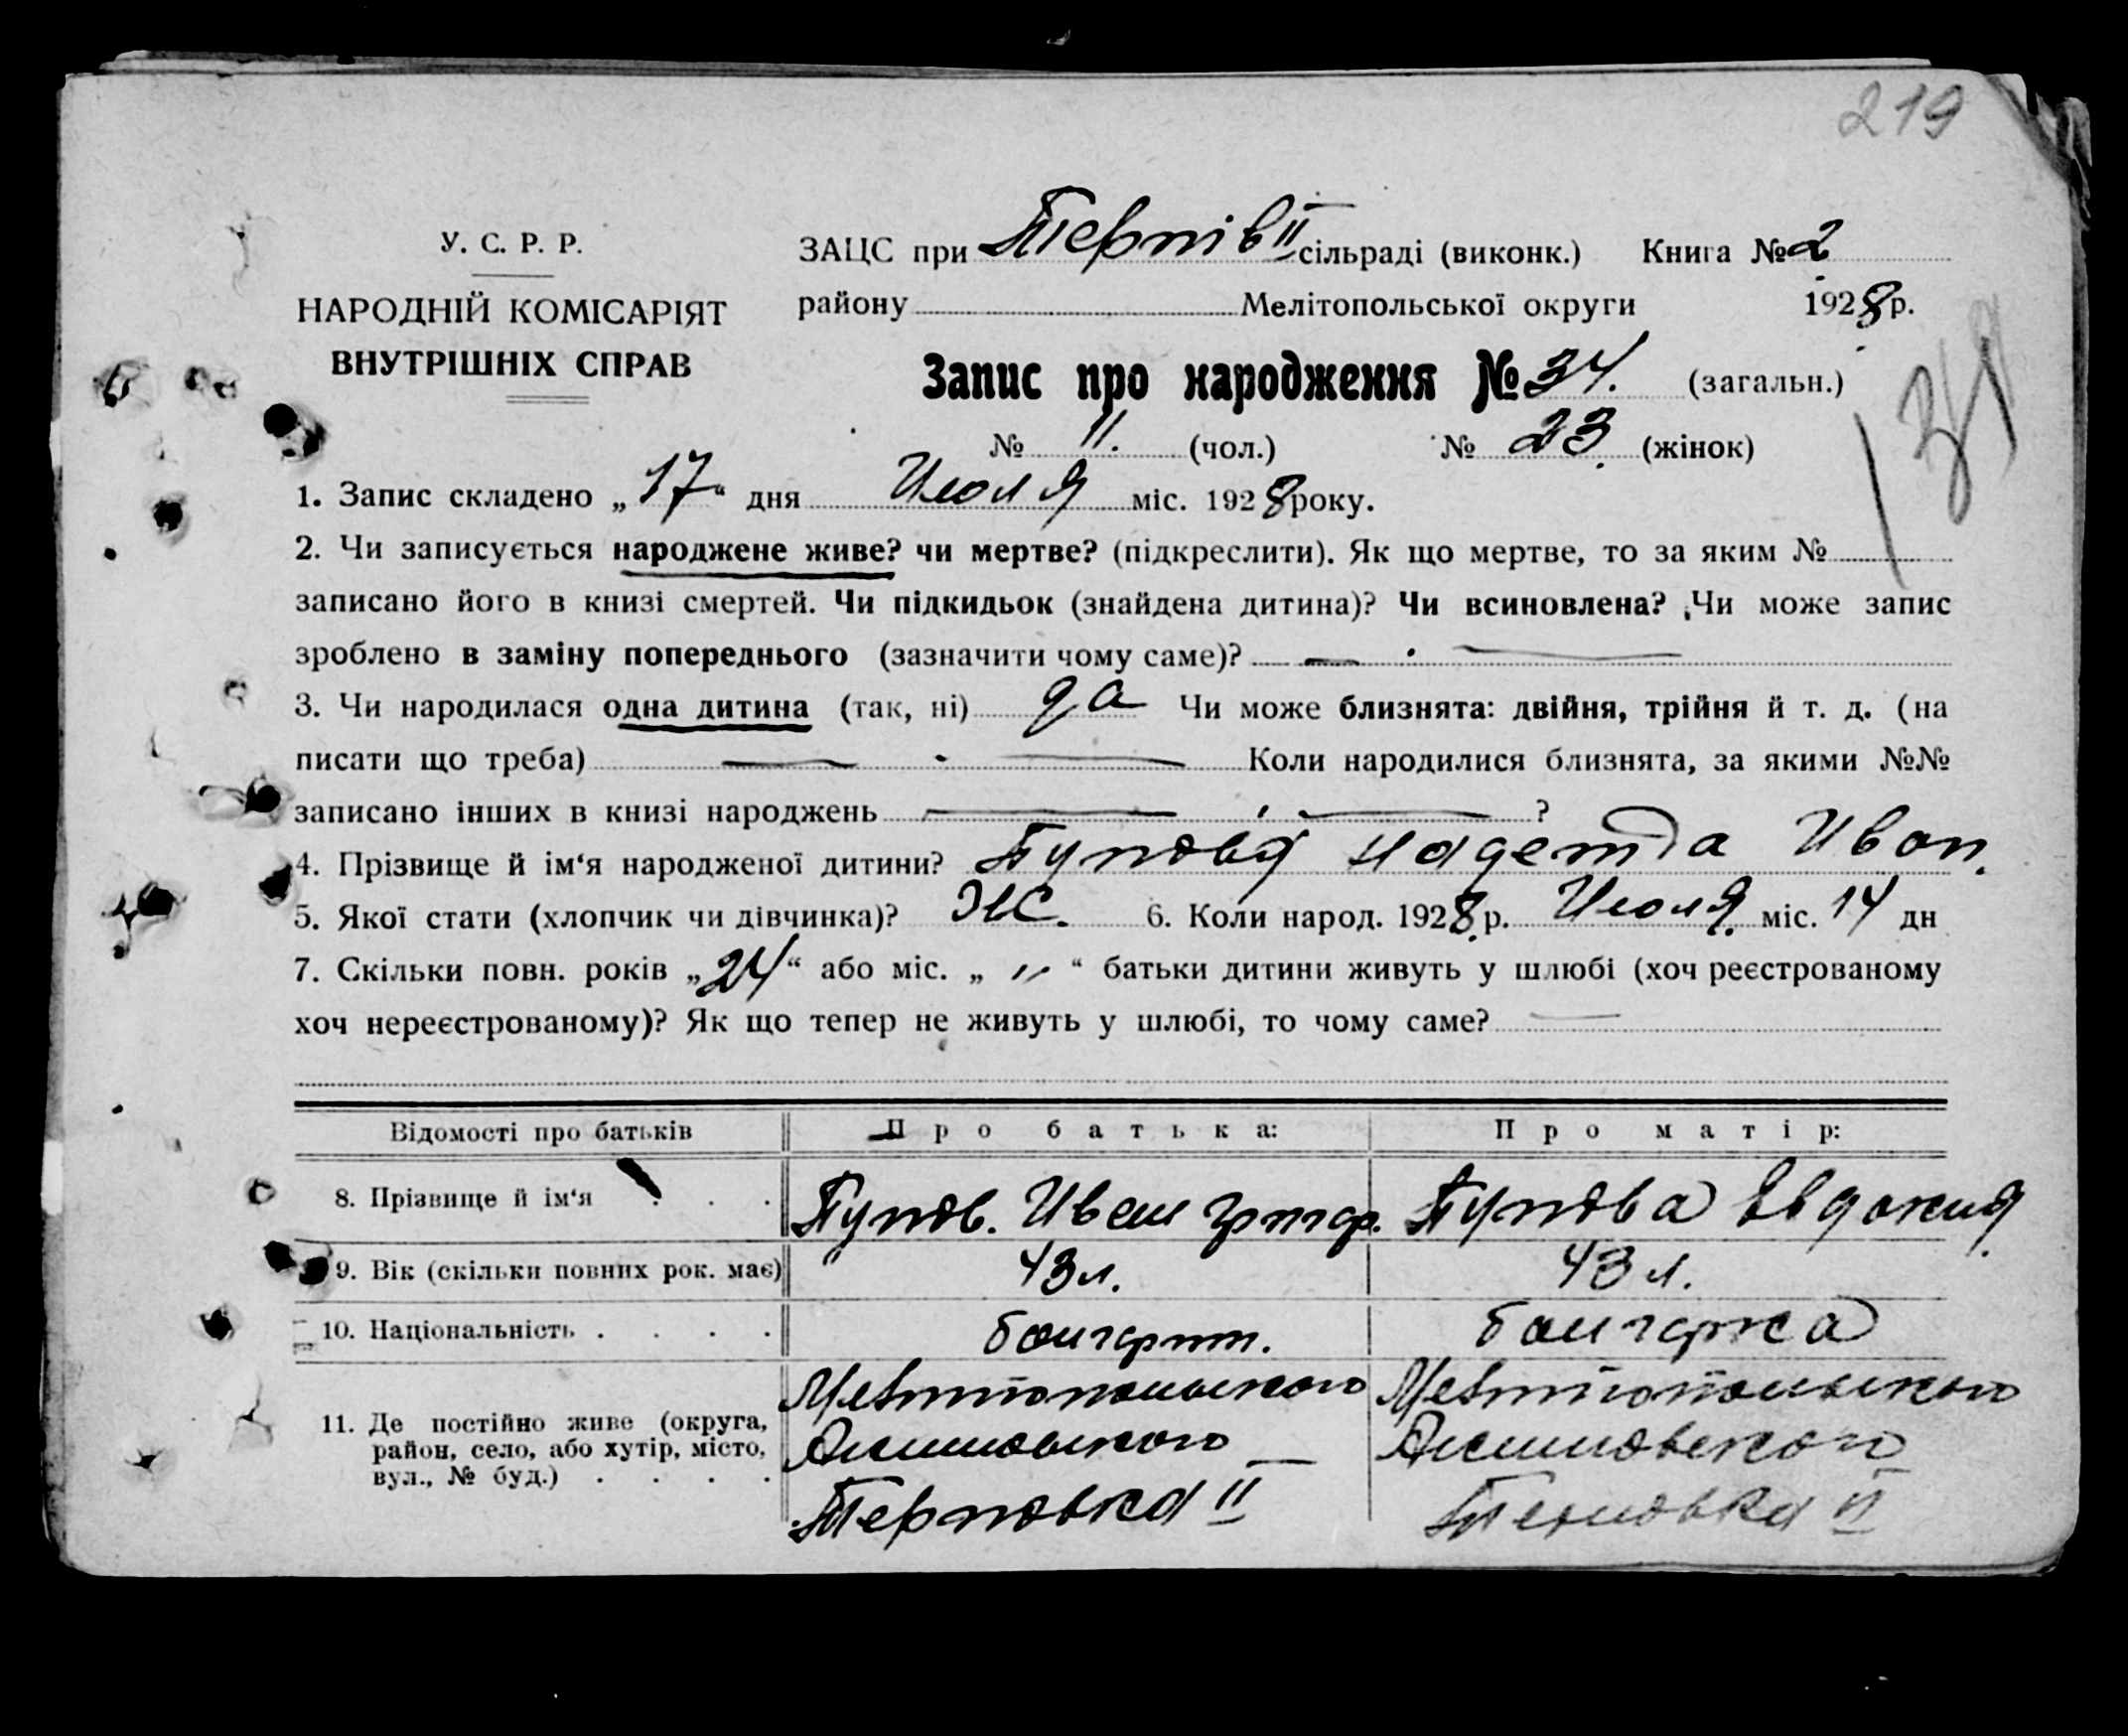 219
У. С. Р. Р.
НАРОДНІЙ КОМІСАРІЯТ
ВНУТРІШНІХ СПРАВ
ЗАЦС при Тернів II сільраді (виконк.) Книга № 2
району Мелітопольської округи 1928 р.
Запис про народження № 34. (загальн.)
№ 11. (чол.) № 23. (жінок)
1. Запис складено „17“ дня Июля міс. 1928 року.
2. Чи записується народжене живе? чи мертве? (підкреслити). Як що мертве, то за яким №
записано його в книзі смертей. Чи підкидьок (знайдена дитина)? Чи всиновлена? Чи може запис
зроблено в заміну попереднього (зазначити чому саме)? — —
3. Чи народилася одна дитина (так, ні) да Чи може близнята: двійня, трійня й т. д. (на
писати що треба) — — Коли народилися близнята, за якими №№
записано інших в книзі народжень — — ?
4. Прізвище й ім‘я народженої дитини? Надежда Иван.
5. Якої стати (хлопчик чи дівчинка)? Ж. 6. Коли народ. 1928 р. Июля міс. 14 дн
7. Скільки повн. років „24“ або міс. „ “ батьки дитини живуть у шлюбі (хоч реєстрованому
хоч нереєстрованому)? Як що тепер не живуть у шлюбі, то чому саме? —
Відомості про батьків Про батька: Про матір:
8. Прізвище й ім‘я . . . Иван Григор. Евдокия
9. Вік (скільки повних рок. має) 43 л. 43 л.
10. Національність . . . . болгарин. болгарка
11. Де постійно живе (округа, Мелитопольского Мелитопольского
район, село, або хутір, місто, Акимовского Акимовского
вул., № буд.) . . . . Терновка II Терновка II